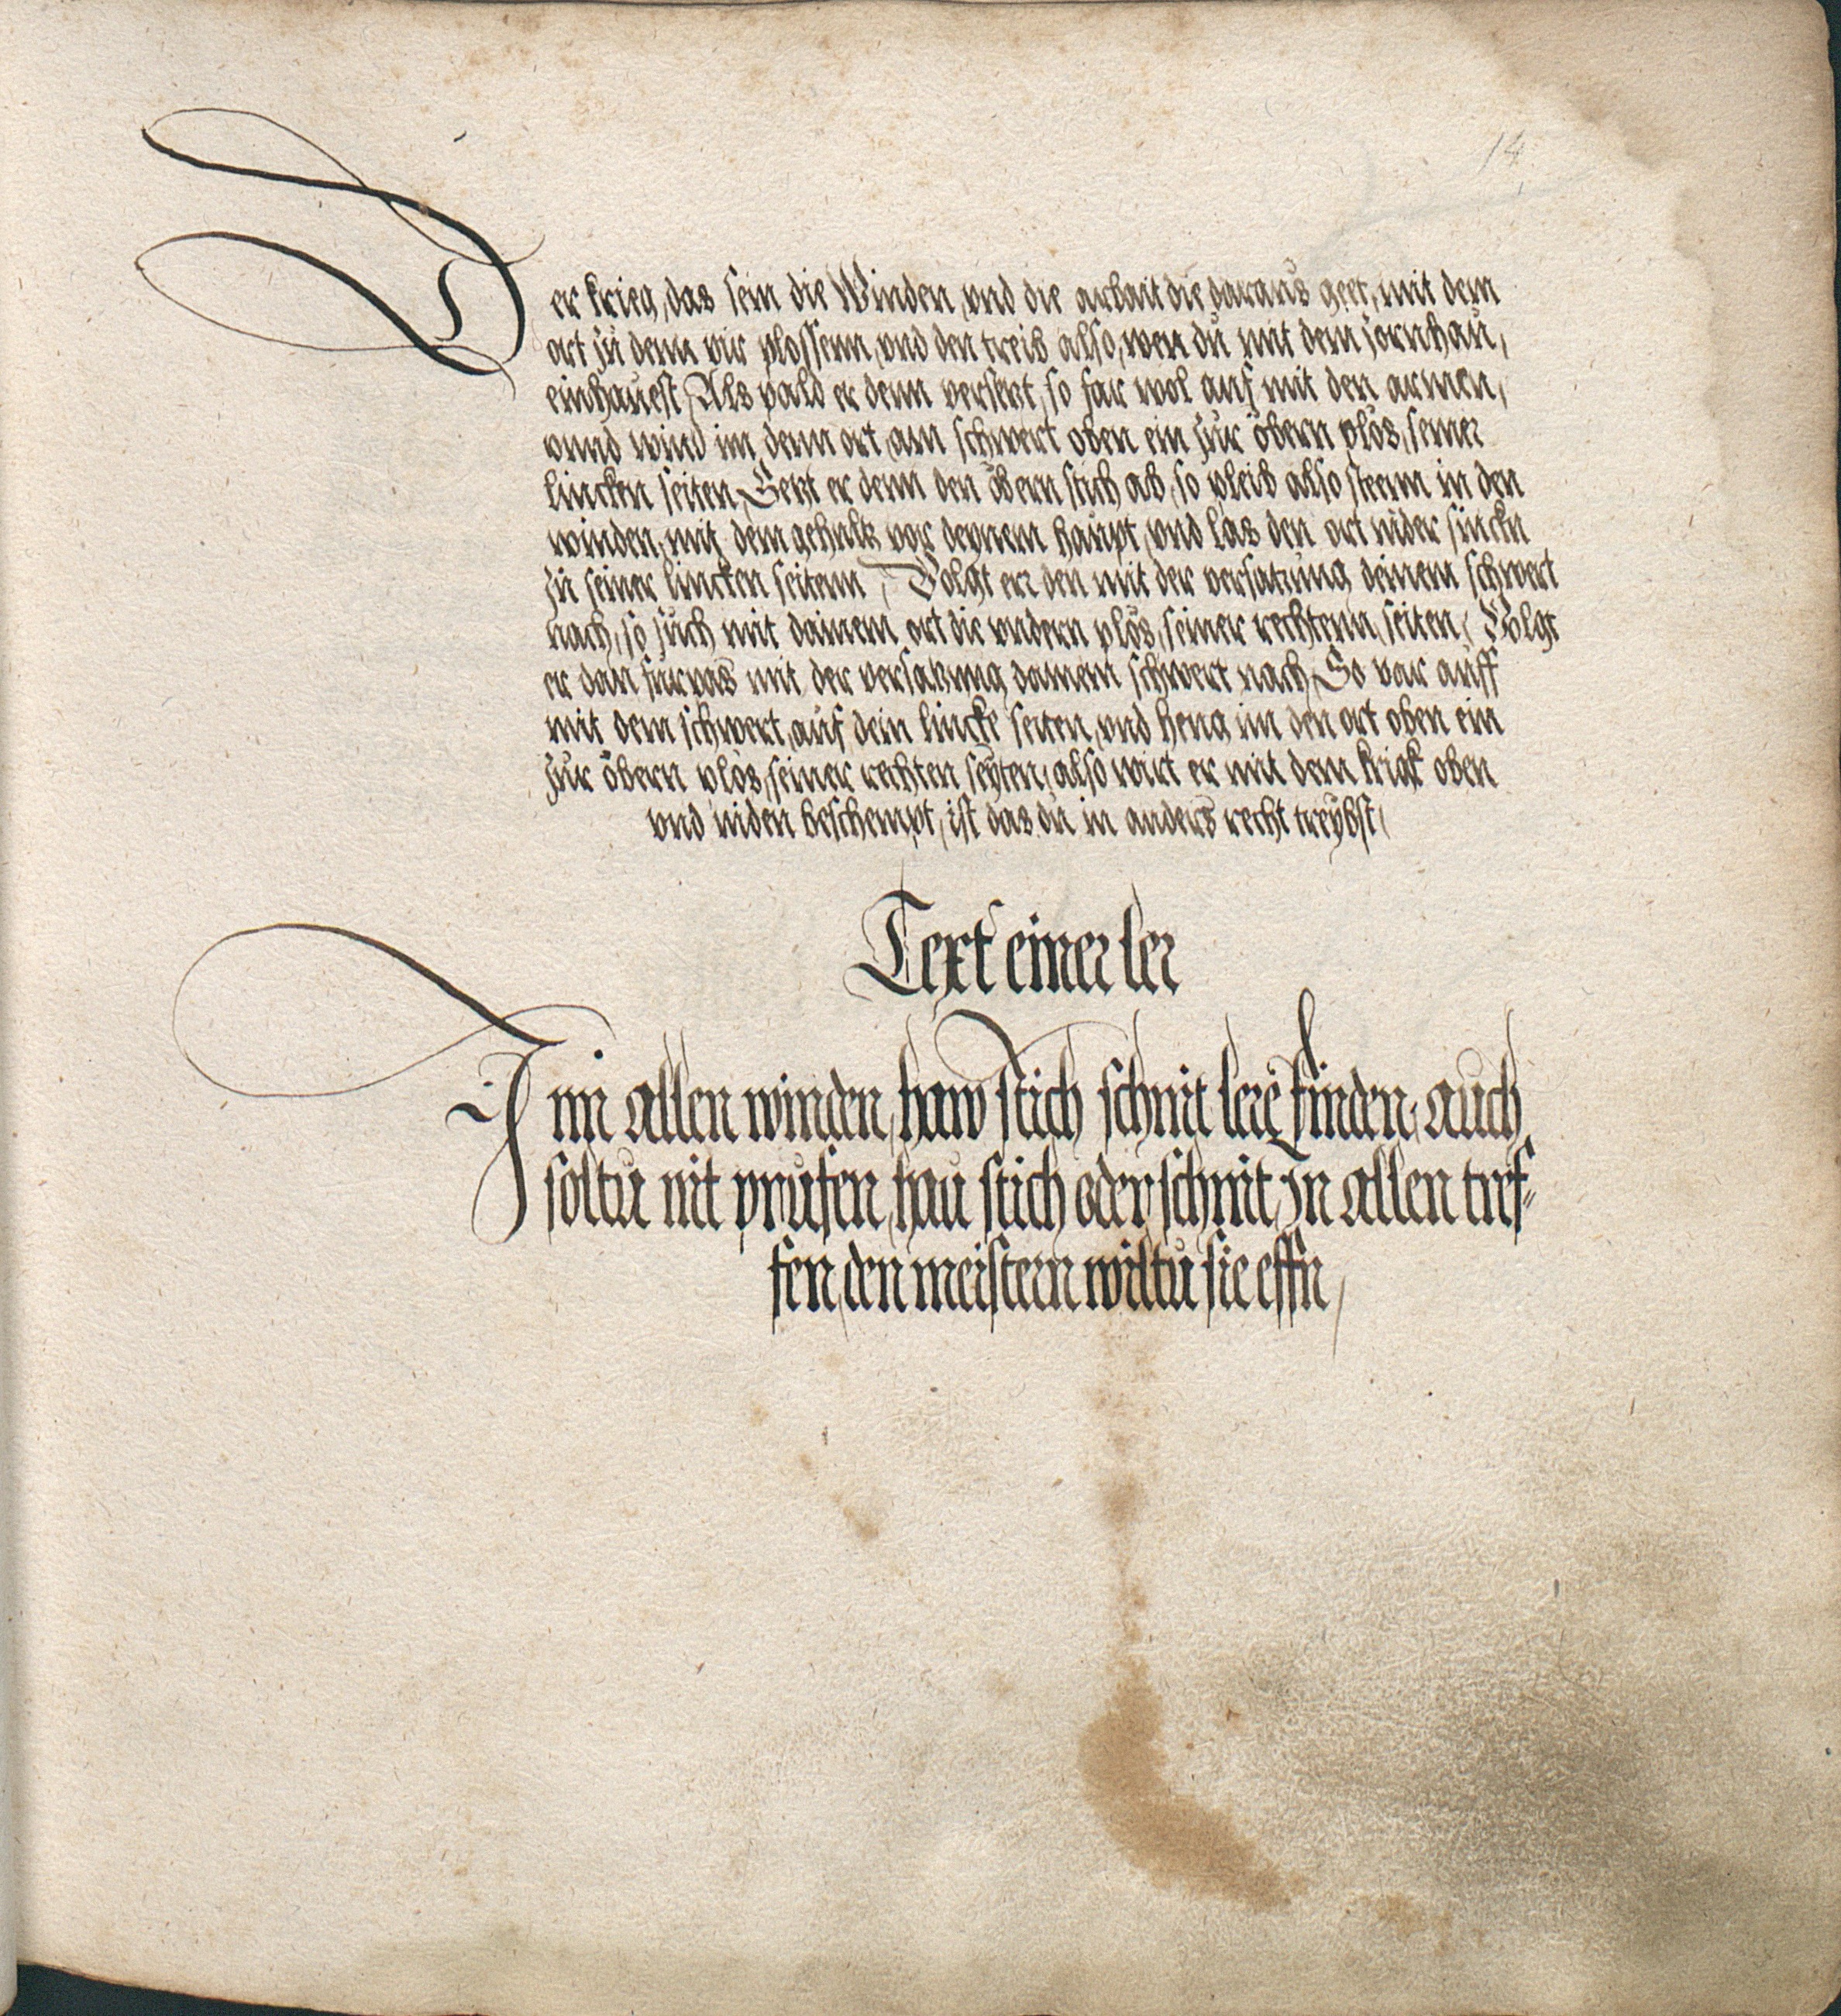 14
Der krieg, das sein die Winden, vnd die arbait die daraus geet, mit dem
ort zu denn vir plossenn, vnd den treib also, wen du mit dem zornhau,
einhauest, Als pald er denn versetzt, so far wol auf mit den armen,
vnnd wind im denn ort am schwert oben ein zur öbern plös, seiner
lincken seiten, Setzt er denn den öbern stich ab, so pleib also steenn in den
winden, mit dem gehultz vor deynem haupt, vnd las den ort nider sinckn
zu seiner lincken seitenn, Volgt er den mit der versatzung deinem schwert
nach, so such mit dainem ort die vndern plös, seiner rechtenn seiten, Volgt
er dan furpas mit der versatzung dainem schwert nach, So var auff
mit dem schwert, auf dein lincke seiten, vnd heng im den ort oben ein
zur öbern plös, seiner rechten seyten, also wirt er mit dem krigk oben
vnd niden beschempt, ist das du in anders recht treybst,
Text einer ler
Inn allen winden, haw stich schnit lerē finden, auch
soltu nit prufen, hau stich oder schnit, In allen tref-
fen, den meistern wiltu sie effn,